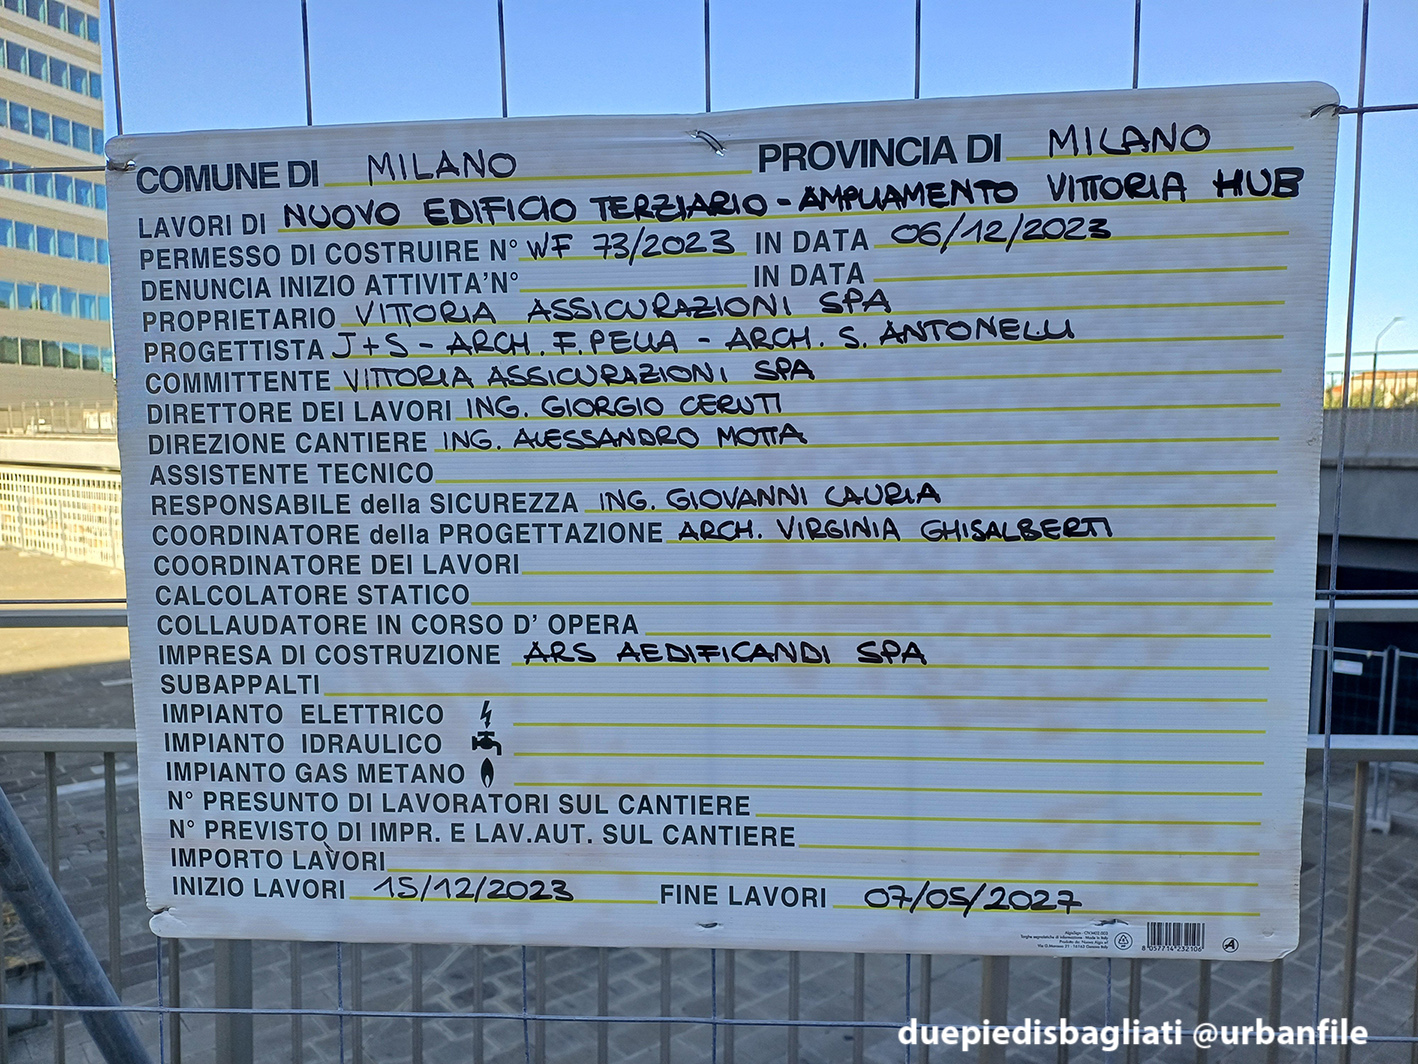 COMUNE DI MILANO PROVINCIA DI MILANO
LAVORI DI NUOVO EDIFICIO TERZIARIO - AMPLIAMENTO VITTORIA HUB
PERMESSO DI COSTRUIRE N° WF 73/2023 IN DATA 06/12/2023
DENUNCIA INIZIO ATTIVITA'N° IN DATA
PROPRIETARIO VITTORIA ASSICURAZIONI SPA
PROGETTISTA J+S - ARCH. F. PELLA - ARCH. S. ANTONELLI
COMMITTENTE VITTORIA ASSICURAZIONI SPA
DIRETTORE DEI LAVORI ING. GIORGIO CERUTI
DIREZIONE CANTIERE ING. ALESSANDRO MOTTA
ASSISTENTE TECNICO
RESPONSABILE della SICUREZZA ING. GIOVANNI LAURIA
COORDINATORE della PROGETTAZIONE ARCH. VIRGINIA GHISALBERTI
COORDINATORE DEI LAVORI
CALCOLATORE STATICO
COLLAUDATORE IN CORSO D' OPERA
IMPRESA DI COSTRUZIONE ARS AEDIFICANDI SPA
SUBAPPALTI
IMPIANTO ELETTRICO
IMPIANTO IDRAULICO
IMPIANTO GAS METANO
N° PRESUNTO DI LAVORATORI SUL CANTIERE
N° PREVISTO DI IMPR. E LAV.AUT. SUL CANTIERE
IMPORTO LAVORI
INIZIO LAVORI 15/12/2023 FINE LAVORI 07/05/2027
8 057714 232106
duepiedisbagliati @urbanfile